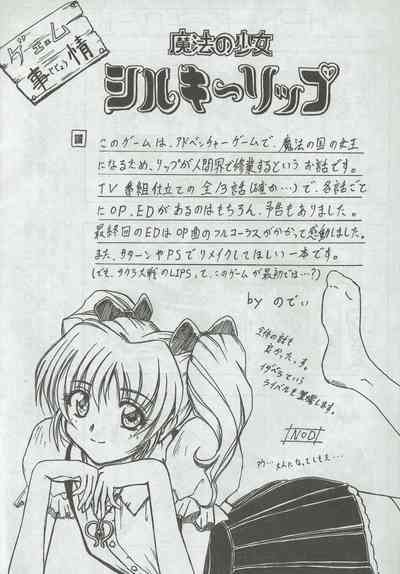 ゲェム
事情
じじょう
魔法の少女
シルキーリップ
このゲームは、アドベンチャーゲームで、魔法の国の女王
になるため、リップが人間界で修業するという お話です。
TV番組仕立ての 全13話(確か…)で、各話ごと
にOP、EDがあるのはもちろん、予告もありました。
最終回のEDはOP曲のフルコーラスがかかって感動しました。
また、サターンやPSでリメイクしてほしい一本です。
(でも、サクラ大戦のLIPSって、このゲームが最初では…?)
by のでぃ
全体の話も
良かったっす。
イザベラという
ライバルも登場します。
NOD